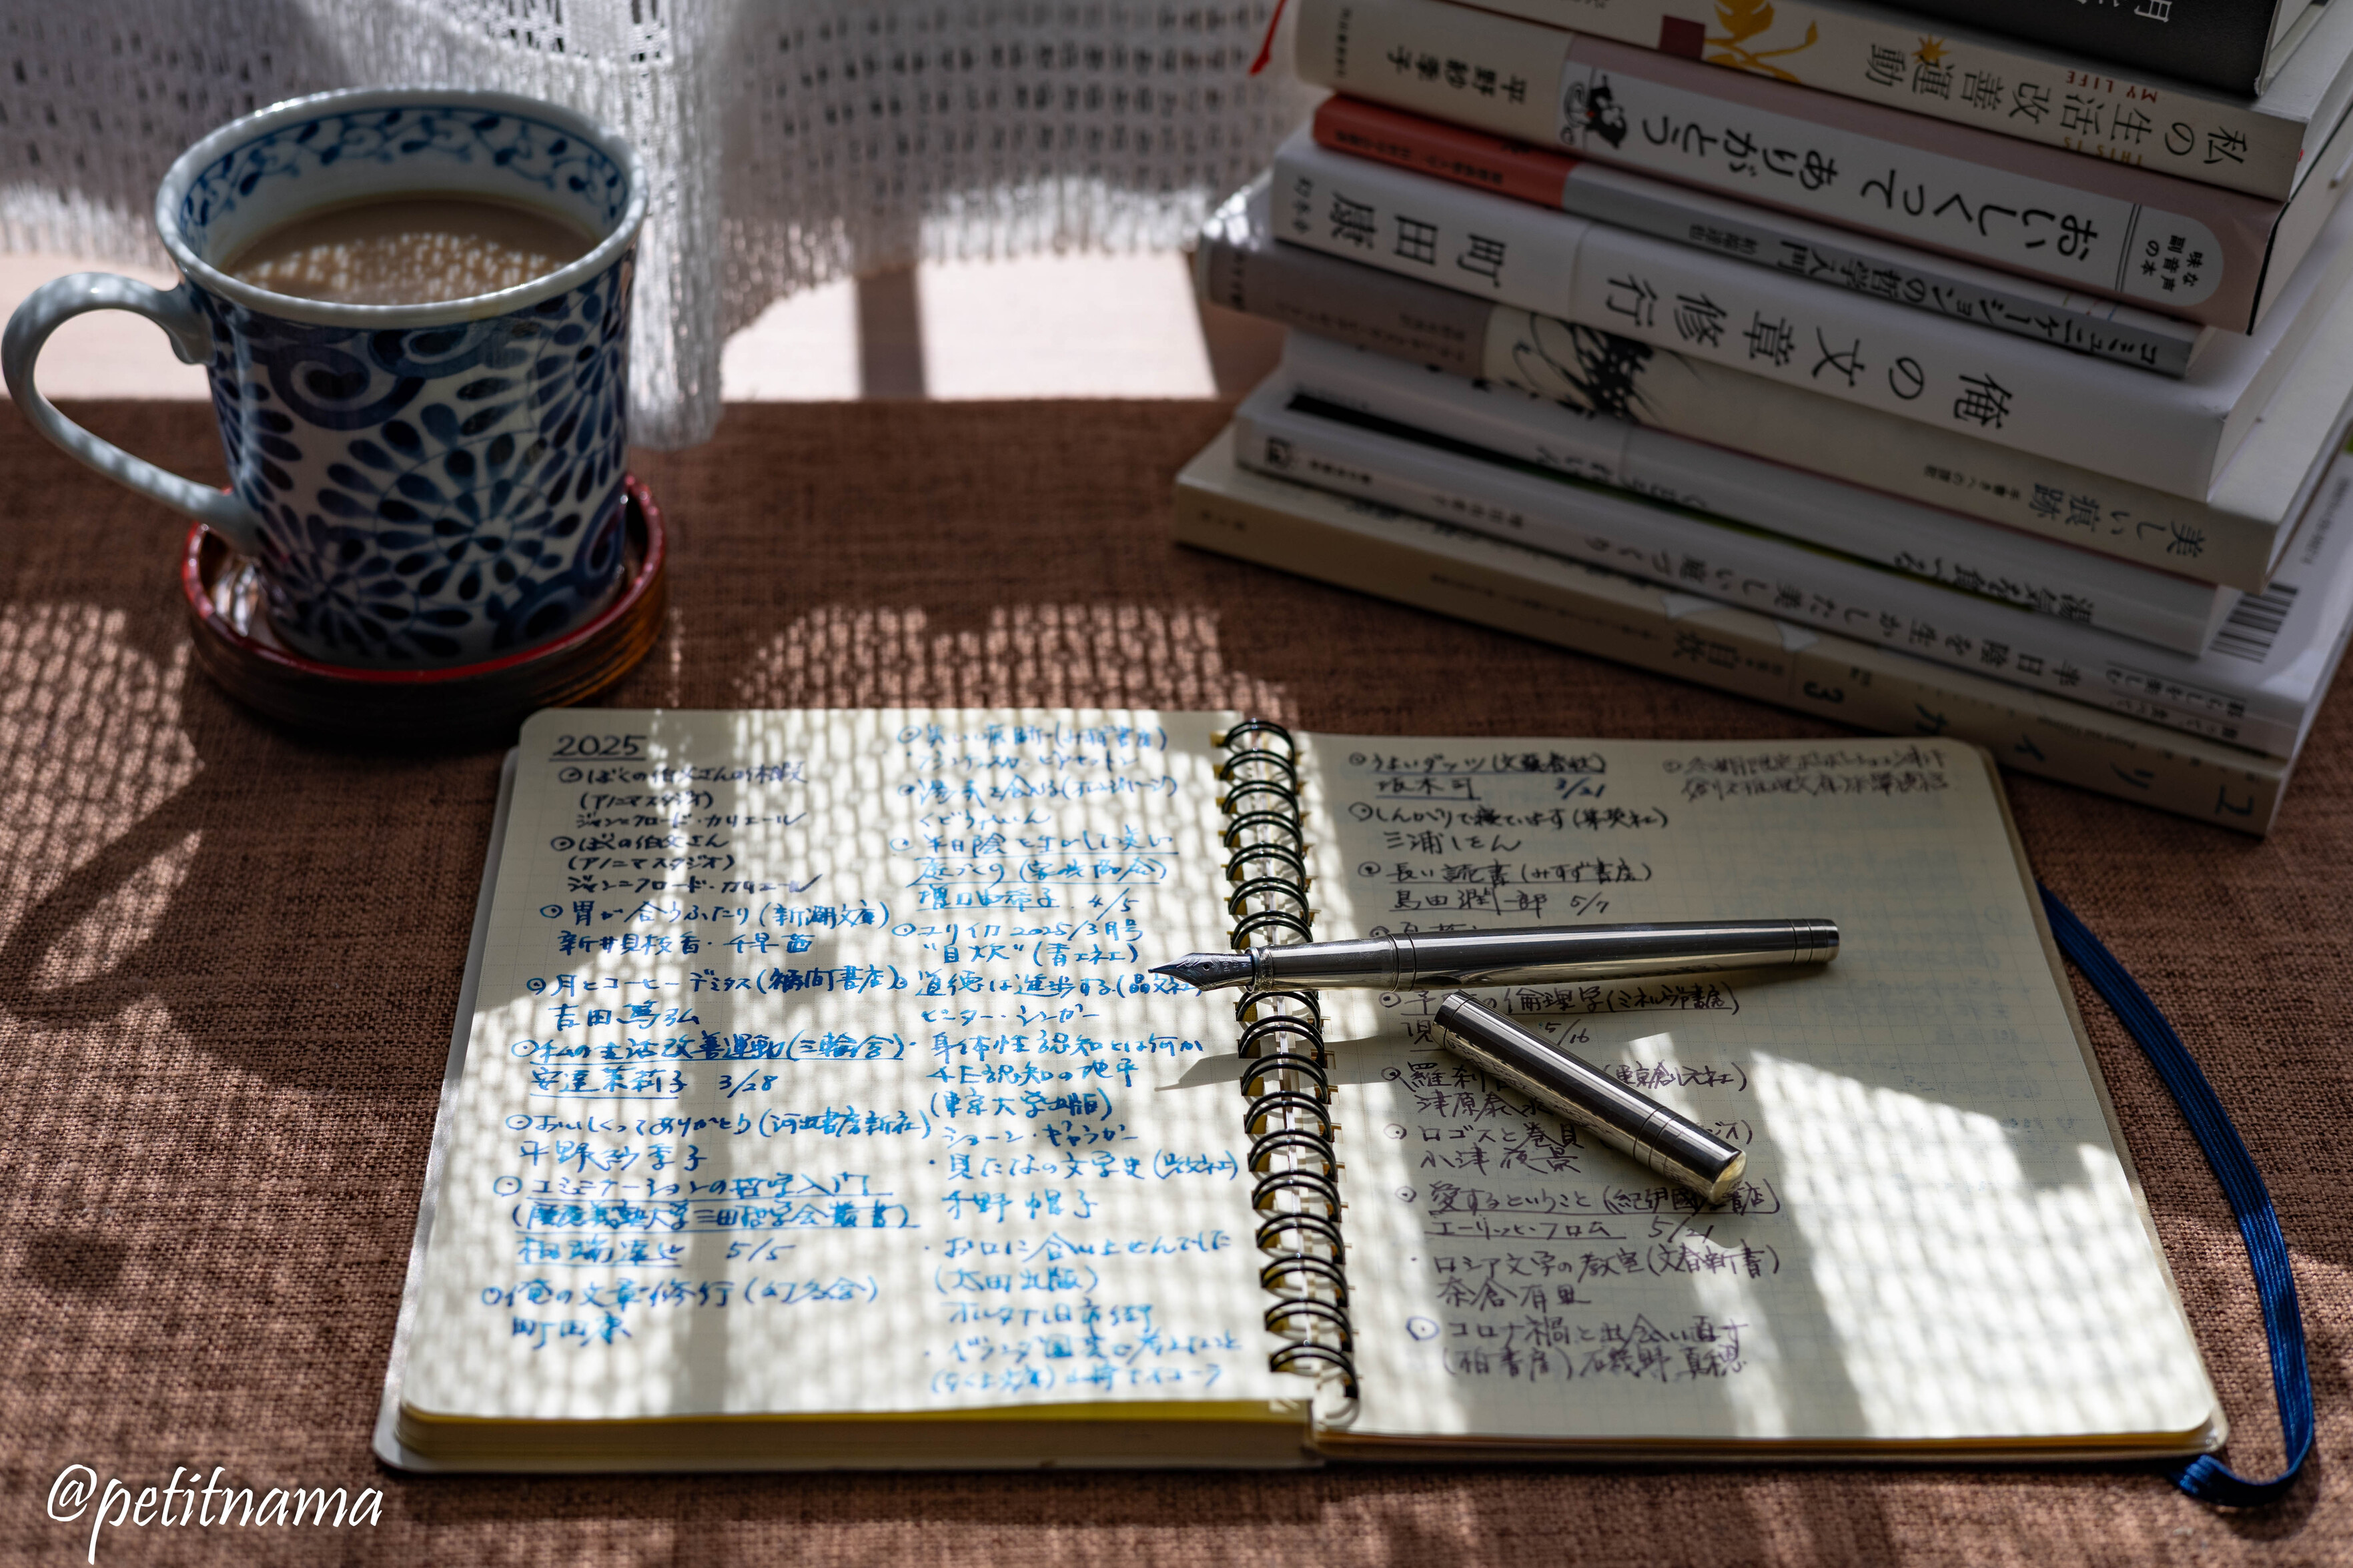 2025
ぼくの伯父さんの休暇
(アノニマスタジオ)
ジャン=クロード・カリエール
ぼくの伯父さん
(アノニマスタジオ)
ジャン=クロード・カリエール
胃が合うふたり(新潮文庫)
新井見枝香・千早茜
月とコーヒー デミタス(徳間書店)
吉田篤弘
私の生活改善運動(三輪舎)
安達茉莉子 3/28
おいしくってありがとう(河出書房新社)
平野紗季子
コミュニケーションの哲学入門
(慶應義塾大学三田哲学会叢書)
柏端達也 5/5
俺の文章修行(幻冬舎)
町田康
美しい痕跡(みすず書房)
湯気を食べる(オレンジページ)
くどうれいん
半日陰を生かした美しい
庭づくり(家の光協会)
増田由希子 4/5
ユリイカ 2025/3月号
"自炊"(青土社)
道徳は進歩する(晶文社)
ピーター・シンガー
・身体性認知とは何か
4E認知の地平
(東京大学出版)
ショーン・ギャラガー
(晶文社)
千野帽子
・お口に合いませんでした
(太田出版)
オルタナ旧市街
うまいダッツ(文藝春秋)
坂木司 3/21
しんがりで寝ています(集英社)
三浦しをん
長い読書(みすず書房)
島田潤一郎 5/7
の倫理学(ミネルヴァ書房)
5/16
羅刹
(東京創元社)
津原泰水
ロゴスと巻貝
小津夜景
愛するということ(紀伊國屋書店)
エーリッヒ・フロム 5/21
・ロシア文学の教室(文春新書)
奈倉有里
コロナ禍と出会い直す
(柏書房)磯野真穂
私の生活改善運動
THIS IS MY LIFE
味な副音声の本
おいしくってありがとう
平野紗季子
コミュニケーションの哲学入門
柏端達也
俺の文章修行
町田康
幻冬舎
美しい痕跡
手書きへの賛歌
湯気を食べる
くどうれいん
半日陰を生かした美しい庭づくり
ユリイカ
3
自炊
@petitnama